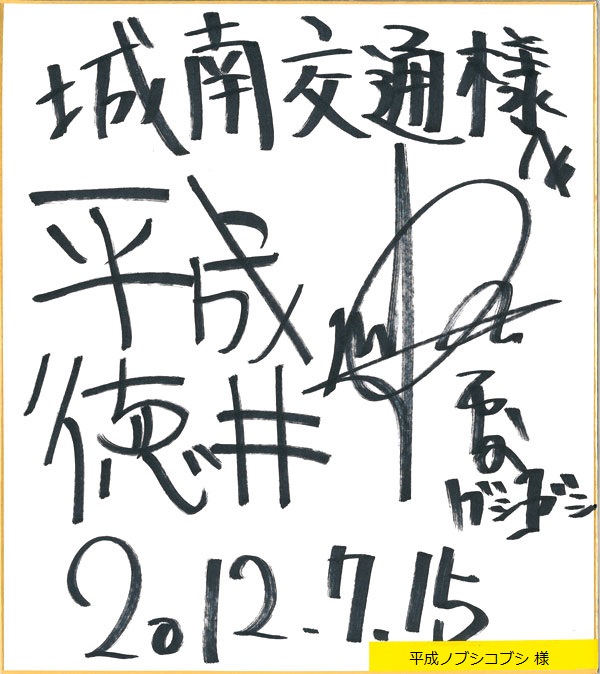 城南交通様へ
平成
徳井
2012.7.15
平成ノブシコブシ 様